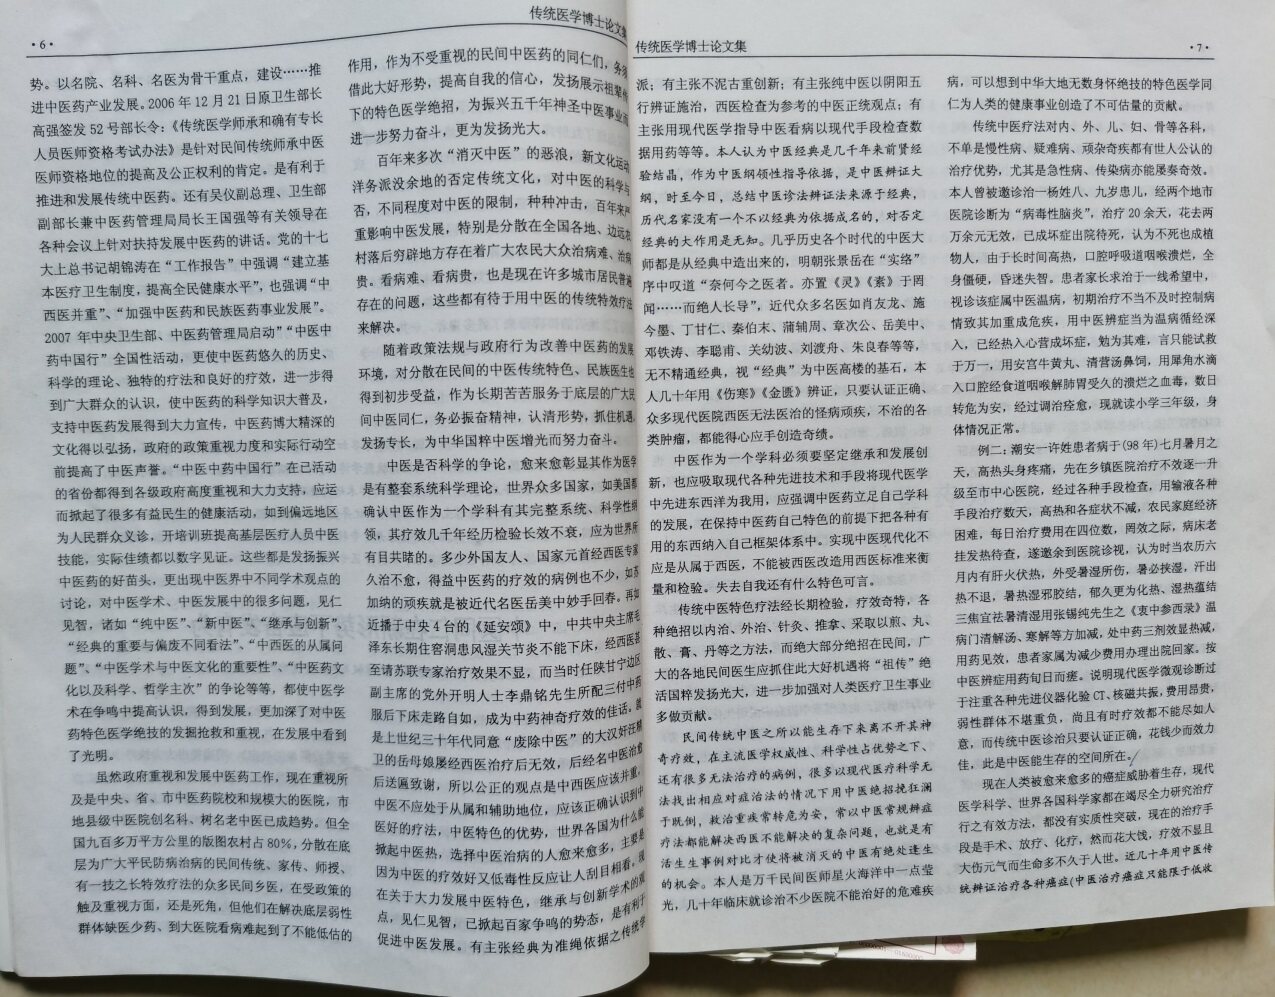 ·6·
传统医学博士论文集
势。以名院、名科、名医为骨干重点，建设……推
进中医药产业发展。2006年12月21日原卫生部长
高强签发52号部长令：《传统医学师承和确有专长
人员医师资格考试办法》是针对民间传统师承中医
医师资格地位的提高及公正权利的肯定。是有利于
推进和发展传统中医药。还有吴仪副总理、卫生部
副部长兼中医药管理局局长王国强等有关领导在
各种会议上针对扶持发展中医药的讲话。党的十七
大上总书记胡锦涛在“工作报告”中强调“建立基
本医疗卫生制度，提高全民健康水平”，也强调“中
西医并重”、“加强中医药和民族医药事业发展”。
2007年中央卫生部、中医药管理局启动”“中医中
药中国行”全国性活动，更使中医药悠久的历史、
科学的理论、独特的疗法和良好的疗效，进一步得
到广大群众的认识，使中医药的科学知识大普及，
支持中医药发展得到大力宣传，中医药博大精深的
文化得以弘扬，政府的政策重视力度和实际行动空
前提高了中医声誉。“中医中药中国行”在已活动
的省份都得到各级政府高度重视和大力支持，应运
而掀起了很多有益民生的健康活动，如到偏远地区
为人民群众义诊，开培训班提高基层医疗人员中医
技能，实际佳绩都以数字见证。这些都是发扬振兴
中医药的好苗头，更出现中医界中不同学术观点的
讨论，对中医学术、中医发展中的很多问题，见仁
见智，诸如“纯中医”、“新中医”、“继承与创新”、
“经典的重要与偏废不同看法”、“中西医的从属问
题”、“中医学术与中医文化的重要性”、“中医药文
化以及科学、哲学主次”的争论等等，都使中医学
术在争鸣中提高认识，得到发展，更加深了对中医
药特色医学绝技的发掘抢救和重视，在发展中看到
了光明。
虽然政府重视和发展中医药工作，现在重视所
及是中央、省、市中医药院校和规模大的医院，市
地县级中医院创名科、树名老中医已成趋势。但全
国九百多万平方公里的版图农村占80%，分散在底
层为广大平民防病治病的民间传统、家传、师授、
有一技之长特效疗法的众多民间乡医，在受政策的
触及重视方面，还是死角，但他们在解决底层弱性
群体缺医少药、到大医院看病难起到了不能低估的
作用，作为不受重视的民间中医药的同仁们，务须
借此大好形势，提高自我的信心，发扬展示祖辈传
下的特色医学绝招，为振兴五千年神圣中医事业而
进一步努力奋斗，更为发扬光大。
百年来多次“消灭中医”的恶浪，新文化运动
洋务派没余地的否定传统文化，对中医的科学与
否，不同程度对中医的限制，种种冲击，百年来严
重影响中医发展，特别是分散在全国各地、边远农
村落后穷辟地方存在着广大农民大众治病难、治病
贵。看病难、看病贵，也是现在许多城市居民普遍
存在的问题，这些都有待于用中医的传统特效疗法
来解决。
随着政策法规与政府行为改善中医药的发展
环境，对分散在民间的中医传统特色、民族医生也
得到初步受益，作为长期苦苦服务于底层的广大民
间中医同仁，务必振奋精神，认清形势，抓住机遇，
发扬专长，为中华国粹中医增光而努力奋斗。
中医是否科学的争论，愈来愈彰显其作为医学
是有整套系统科学理论，世界众多国家，如美国都
确认中医作为一个学科有其完整系统、科学性纲
领，其疗效几千年经历检验长效不衰，应为世界所
有目共睹的。多少外国友人、国家元首经西医专家
久治不愈，得益中医药的疗效的病例也不少，如苏
加纳的顽疾就是被近代名医岳美中妙手回春。再如
近播于中央4台的《延安颂》中，中共中央主席毛
泽东长期住窑洞患风湿关节炎不能下床，经西医甚
至请苏联专家治疗效果不显，而当时任陕甘宁边区
副主席的党外开明人士李鼎铭先生所配三付中药
服后下床走路自如，成为中药神奇疗效的佳话。就
是上世纪三十年代同意“废除中医”的大汉奸汪精
卫的岳母娘屡经西医治疗后无效，后经名中医治愈
后送匾致谢，所以公正的观点是中西医应该并重，
中医不应处于从属和辅助地位，应该正确认识到中
医好的疗法，中医特色的优势，世界各国为什么能
掀起中医热，选择中医治病的人愈来愈多，主要是
因为中医的疗效好又低毒性反应让人刮目相看。现
在关于大力发展中医特色，继承与创新学术的观
点，见仁见智，已掀起百家争鸣的势态，是有利于
促进中医发展。有主张经典为准绳依据之传统学
传统医学博士论文集
·7·
派；有主张不泥古重创新；有主张纯中医以阴阳五
行辨证施治，西医检查为参考的中医正统观点；有
主张用现代医学指导中医看病以现代手段检查数
据用药等等。本人认为中医经典是几千年来前贤经
验结晶，作为中医纲领性指导依据，是中医辨证大
纲，时至今日，总结中医诊法辨证法来源于经典，
历代名家没有一个不以经典为依据成名的，对否定
经典的大作用是无知。几乎历史各个时代的中医大
师都是从经典中造出来的，明朝张景岳在“实络”
序中叹道“奈何今之医者。亦置《灵》《素》于罔
闻……而绝人长导”，近代众多名医如肖友龙、施
今墨、丁甘仁、秦伯末、蒲辅周、章次公、岳美中、
邓铁涛、李聪甫、关幼波、刘渡舟、朱良春等等，
无不精通经典，视“经典”为中医高楼的基石，本
人几十年用《伤寒》《金匮》辨证，只要认证正确、
众多现代医院西医无法医治的怪病顽疾，不治的各
类肿瘤，都能得心应手创造奇绩。
中医作为一个学科必须要坚定继承和发展创
新，也应吸取现代各种先进技术和手段将现代医学
中先进东西洋为我用，应强调中医药立足自己学科
的发展，在保持中医药自己特色的前提下把各种有
用的东西纳入自己框架体系中。实现中医现代化不
应是从属于西医，不能被西医改造用西医标准来衡
量和检验。失去自我还有什么特色可言。
传统中医特色疗法经长期检验，疗效奇特，各
种绝招以内治、外治、针灸、推拿、采取以煎、丸、
散、膏、丹等之方法，而绝大部分绝招在民间，广
大的各地民间医生应抓住此大好机遇将“祖传”绝
活国粹发扬光大，进一步加强对人类医疗卫生事业
多做贡献。
民间传统中医之所以能生存下来离不开其神
奇疗效，在主流医学权威性、科学性占优势之下、
还有很多无法治疗的病例，很多以现代医疗科学无
法找出相应对症治法的情况下用中医绝招挽狂澜
于既倒，救治重疾常转危为安，常以中医常规辨症
疗法都能解决西医不能解决的复杂问题，也就是有
活生生事例对比才使将被消灭的中医有绝处逢生
的机会。本人是万千民间医师星火海洋中一点莹
光，几十年临床就诊治不少医院不能治好的危难疾
病，可以想到中华大地无数身怀绝技的特色医学同
仁为人类的健康事业创造了不可估量的贡献。
传统中医疗法对内、外、儿、妇、骨等各科，
不单是慢性病、疑难病、顽杂奇疾都有世人公认的
治疗优势，尤其是急性病、传染病亦能屡奏奇效。
本人曾被邀诊治一杨姓八、九岁患儿，经两个地市
医院诊断为“病毒性脑炎”，治疗20余天，花去两
万余元无效，已成坏症出院待死，认为不死也成植
物人，由于长时间高热，口腔呼吸道咽喉溃烂，全
身僵硬，昏迷失智。患者家长求治于一线希望中，
视诊该症属中医温病，初期治疗不当不及时控制病
情致其加重成危疾，用中医辨症当为温病循经深
入，已经热入心营成坏症，勉为其难，言只能试救
于万一，用安宫牛黄丸、清营汤鼻饲，用犀角水滴
入口腔经食道咽喉解肺胃受久的溃烂之血毒，数日
转危为安，经过调治痊愈，现就读小学三年级，身
体情况正常。
例二：潮安一许姓患者病于（98年）七月暑月之
天，高热头身疼痛，先在乡镇医院治疗不效逐一升
级至市中心医院，经过各种手段检查，用输液各种
手段治疗数天，高热和各症状不减，农民家庭经济
困难，每日治疗费用在四位数，罔效之际，病床老
挂发热待查，遂邀余到医院诊视，认为时当农历六
月内有肝火伏热，外受暑湿所伤，暑必挟湿，汗出
热不退，暑热湿邪胶结，郁久更为化热、湿热蕴结
三焦宜祛暑清湿用张锡纯先生之《衷中参西录》温
病门清解汤、寒解等方加减，处中药三剂效显热减，
用药见效，患者家属为减少费用办理出院回家。按
中医辨症用药旬日而瘥。说明现代医学微观诊断过
于注重各种先进仪器化验CT、核磁共振，费用昂贵，
弱性群体不堪重负，尚且有时疗效都不能尽如人
意，而传统中医诊治只要认证正确，花钱少而效力
佳，此是中医能生存的空间所在。
现在人类被愈来愈多的癌症威胁着生存，现代
医学科学、世界各国科学家都在竭尽全力研究治疗
行之有效方法，都没有实质性突破，现在的治疗手
段是手术、放疗、化疗，然而花大钱，疗效不显且
大伤元气而生命多不久于人世。近几十年用中医传
统辨证治疗各种癌症（中医治疗癌症只能限于低收